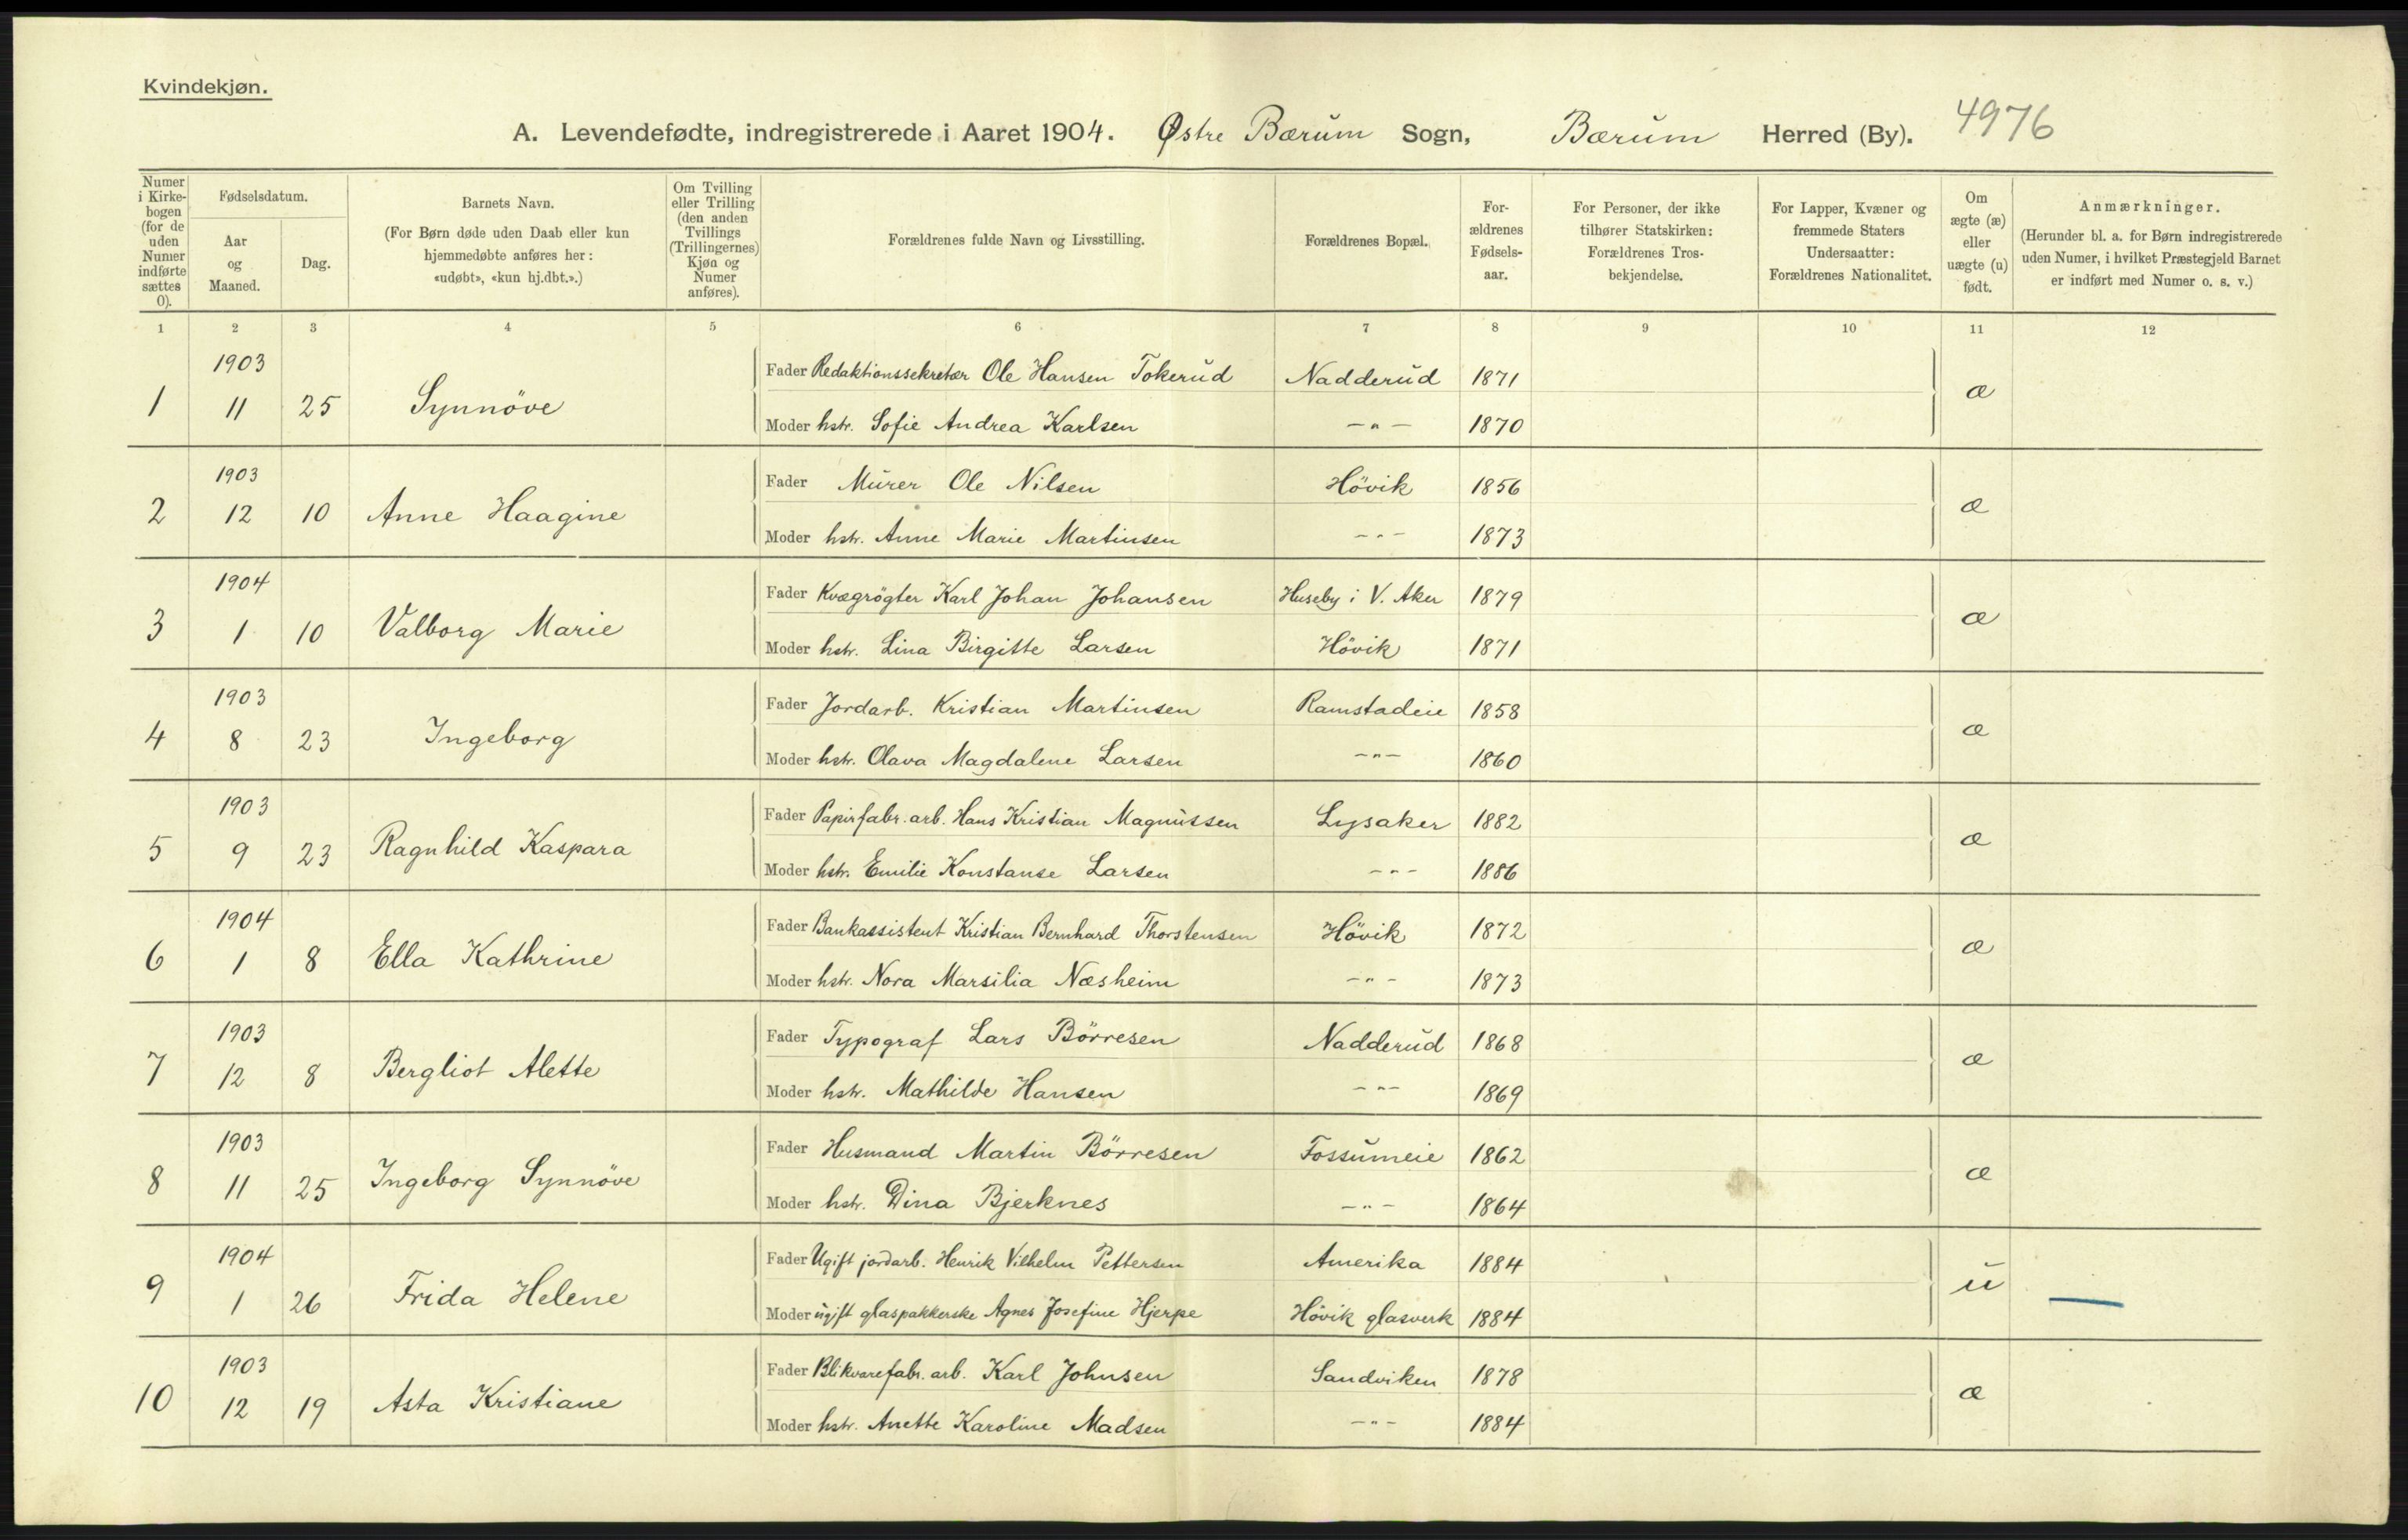 Kvindekjøn.
A. Levendefødte, indregistrerede i Aaret 1904. Østre Bærum Sogn, Bærum Herred (By). 4976
Numer i Kirke-bogen (for de uden Numer indførte sættes 0).
Fødselsdatum.
Aar og Maaned.
Dag.
Barnets Navn.
(For Børn døde uden Daab eller kun hjemmedøbte anføres her: «udøbt», «kun hj.dbt.».)
Om Tvilling eller Trilling (den anden Tvillings (Trillingernes) Kjøn og Numer anføres).
Forældrenes fulde Navn og Livsstilling.
Forældrenes Bopæl.
For-ældrenes Fødsels-aar.
For Personer, der ikke tilhører Statskirken: Forældrenes Tros-bekjendelse.
For Lapper, Kvæner og fremmede Staters Undersaatter: Forældrenes Nationalitet.
Om ægte (æ) eller uægte (u) født.
Anmærkninger.
(Herunder bl. a. for Børn indregistrerede uden Numer, i hvilket Præstegjeld Barnet er indført med Numer o. s. v.)
1 2 3 4 5 6 7 8 9 10 11 12
1903 Fader Redaktionssekretær Ole Hansen Tokerud Nadderud 1871
1 11 25 Synnöve æ
Moder hstr. Sofie Andrea Karlsen —"— 1870
1903 Fader Murer Ole Nilsen Hövik 1856
2 12 10 Anne Haagine æ
Moder hstr. Anne Marie Martinsen —"— 1873
1904 Fader Kvægrögter Karl Johan Johansen Huseby i V. Aker 1879
3 1 10 Valborg Marie æ
Moder hstr. Lina Birgitte Larsen Hövik 1871
1903 Fader Jordarb. Kristian Martinsen Ramstadeie 1858
4 8 23 Ingeborg æ
Moder hstr. Olava Magdalene Larsen —"— 1860
1903 Fader Papirfabr. arb. Hans Kristian Magnussen Lysaker 1882
5 9 23 Ragnhild Kaspara æ
Moder hstr. Emilie Konstanse Larsen —"— 1886
1904 Fader Bankassistent Kristian Bernhard Thorstensen Hövik 1872
6 1 8 Ella Kathrine æ
Moder hstr. Nora Marsilia Næsheim —"— 1873
1903 Fader Typograf Lars Börresen Nadderud 1868
7 12 8 Bergliot Alette æ
Moder hstr. Mathilde Hansen —"— 1869
1903 Fader Husmand Martin Börresen Fossumeie 1862
8 11 25 Ingeborg Synnöve æ
Moder hstr. Dina Bjerknes —"— 1864
1904 Fader Ugift jordarb. Henrik Vilhelm Pettersen Amerika 1884
9 1 26 Frida Helene u
Moder ugift glaspakkerske Agnes Josefine Hjerpe Hövik glasverk 1884
1903 Fader Blikvarefabr. arb. Karl Johnsen Sandviken 1878
10 12 19 Asta Kristiane æ
Moder hstr. Anette Karoline Madsen —"— 1884